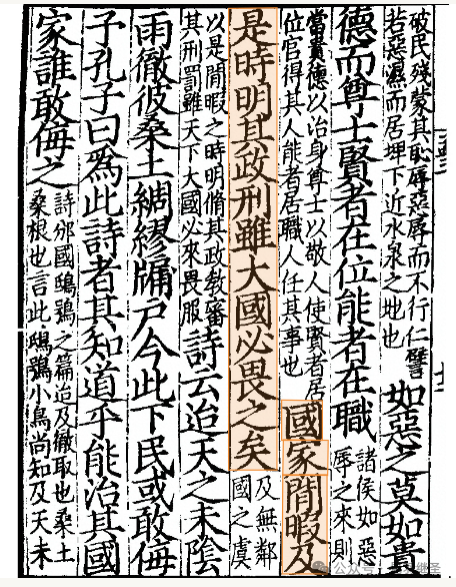 破民殘蒙其恥辱惡辱而不行仁譬
若惡濕而居埤下近水泉之地也
如惡之莫如貴
德而尊士賢者在位能者在職
諸侯如惡
辱之來則
當貴德以治身尊士以敬人使賢者居
位官得其人能者居職人任其事也
國家閒暇及
是時明其政刑雖大國必畏之矣
及無鄰
國之虞
以是閒暇之時明脩其政教審
其刑罰雖天下大國必來畏服
詩云迨天之未陰
雨徹彼桑土綢繆牖戶今此下民或敢侮
子孔子曰為此詩者其知道乎能治其國
家誰敢侮之
詩邠國鴟鴞之篇迨及徹取也桑土
桑根也言此鴟鴞小鳥尚知及天未
公众号
继圣